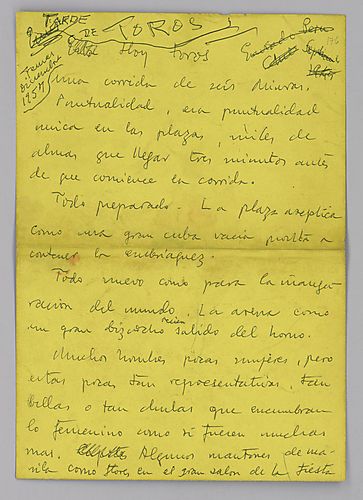 TARDE
DE TOROS
Hoy Toros
1954
Una corrida de seis Miuras.
Puntualidad, esa puntualidad
unica en las plazas, miles de
almas que llegan tres minutos antes
de que comience la corrida.
Todo preparado. La plaza aseptica
como una gran cuba vacia pronta a
contener la embriaguez.
Todo nuevo como para la inaugu
racion del mundo. La arena como
un gran bizcocho recien salido del horno.
Muchos hombres pocas mujeres, pero
estas pocas tan representativas, tan
bellas o tan chulas que encumbran
lo femenino como si fuesen muchas
mas. Algunos mantones de ma
nila como flores en el gran salon de la fiesta